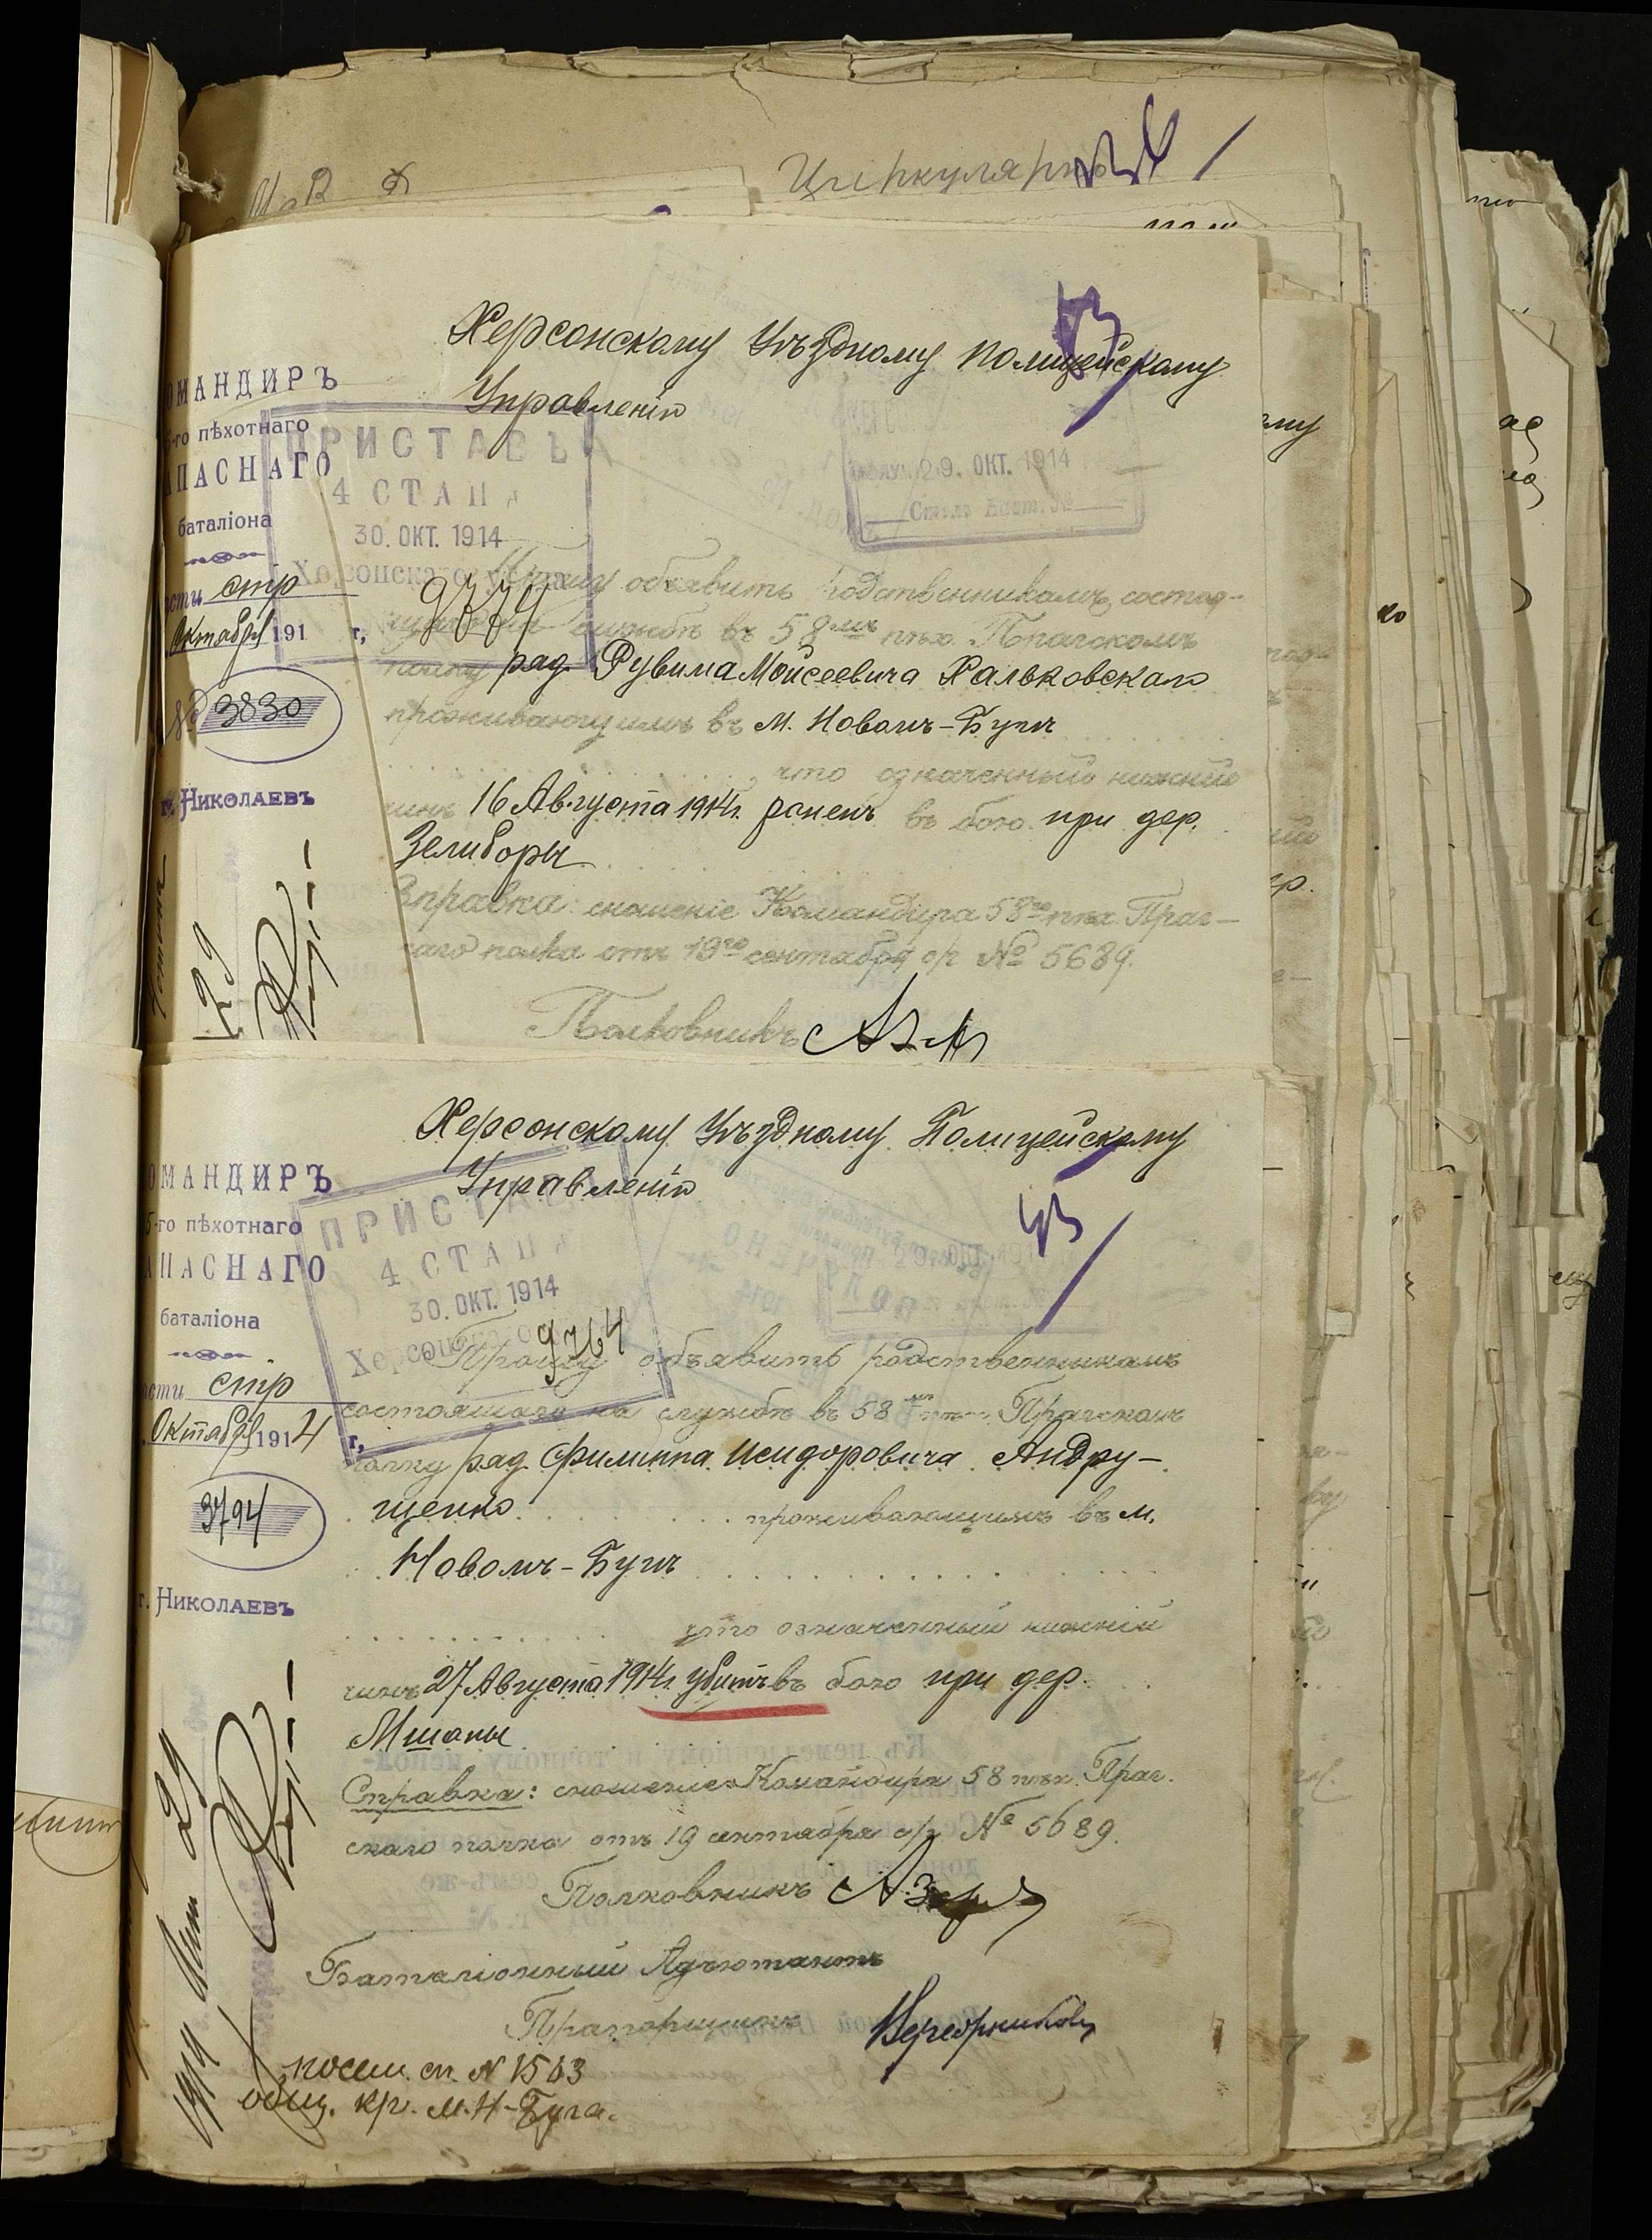 М. В. Д.
Циркулярно
Херсонскому Уѣздному Полицейскому
Управленію
ОМАНДИРЪ
5-го пѣхотнаго
АПАСНАГО
баталіона
сти стр
Октября 191 г,
№ 3830
г. Николаевъ
ПРИСТАВЪ
4 СТАНА
30. ОКТ. 1914
Херсонскаго
9774
29. ОКТ. 1914
Прошу объявить родственникамъ, состоя-
щаго на службѣ въ 58мъ пѣх. Прагскомъ
полку ряд. Рувима Мойсеевича Хальковскаго
проживающимъ въ м. Новомъ-Бугѣ
что означенный нижній
чинъ 16 Августа 1914 г. раненъ въ бою при дер.
Зелиборы
Справка: сношеніе Командира 58го пѣх. Праг-
скаго полка отъ 19го сентября с/г № 5689.
Полковникъ
29
Херсонскому Уѣздному Полицейскому
Управленію
ОМАНДИРЪ
5-го пѣхотнаго
АПАСНАГО
баталіона
сти стр
Октября 1914 г,
3794
г. Николаевъ
ПРИСТАВ
4 СТАНА
30. ОКТ. 1914
Херсонскаго
9764
Прошу объявить родственникамъ
состоящаго на службѣ въ 58мъ пѣх. Прагскомъ
полку ряд. Филиппа Исидоровича Андру-
щенко проживающимъ въ м.
Новомъ-Бугѣ
что означенный нижній
чинъ 27 Августа 1914 г. убитъ въ бою при дер.
Мшаны
Справка: сношеніе Командира 58 пѣх. Праг.
скаго полка отъ 19 сентября с/г № 5689.
Полковникъ
Баталіонный Адъютантъ
Прапорщикъ
29
1914
посем. сп. N 1563
общ. кр. м. Н-Буга.